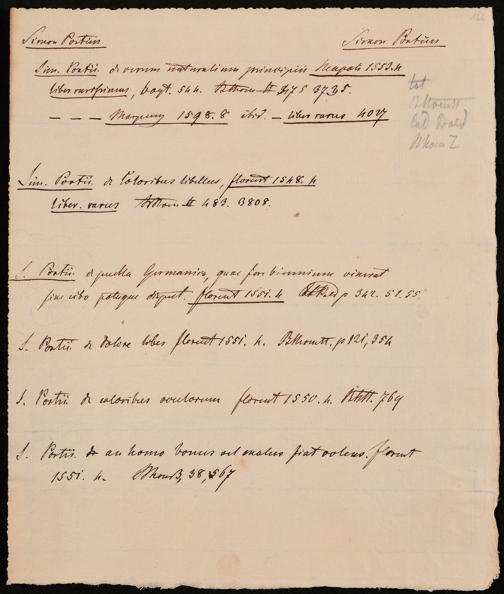 Simon Portius Simon Portius
Sim. Portii de rerum naturalium principiis Neapoli 1553. 4
liber rarissimus, Vogt. 544. 3735.
— — — Marpurg 1598. 8 ibid. — liber rarus 4027
Sim. Portii de Coloribus libellus, florent 1548. 4
liber rarus 483. 3808.
S. Portii de puella Germanica, quae fere biennium vixerat
sine cibo potuque disput. florent 1551. 4 p 342. 51. 55
S. Portii de dolore liber florent 1551. 4. p. 121, 354
S. Portii de coloribus oculorum florent 1550. 4. 769
S. Portii de an homo bonus vel malus fiat volens. florent
1551. 4. 38, 567